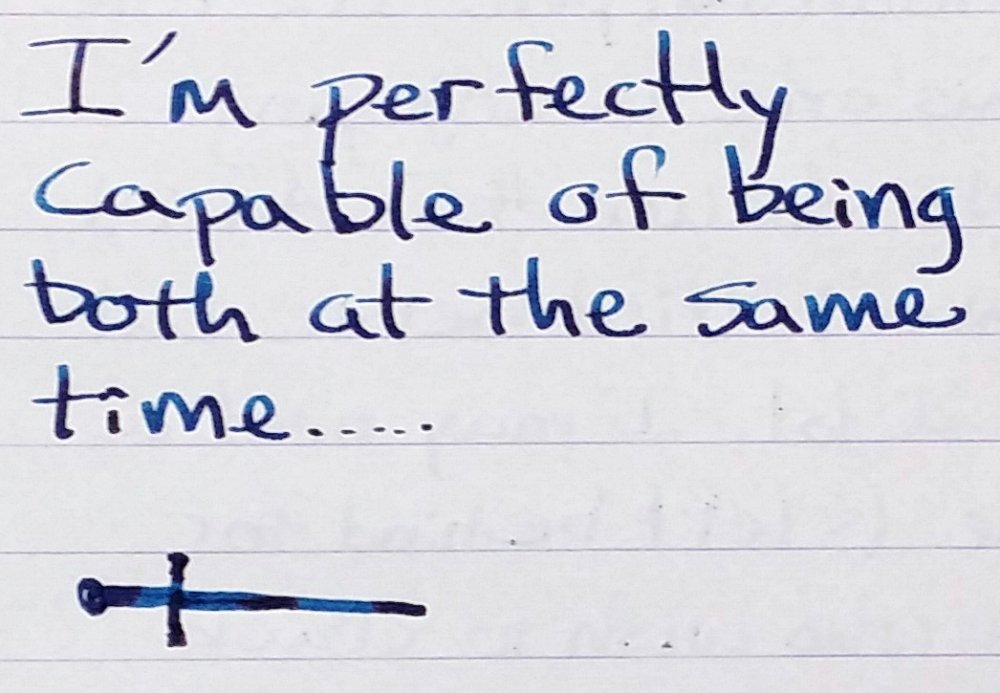 I'm perfectly
capable of being
both at the same
time.....